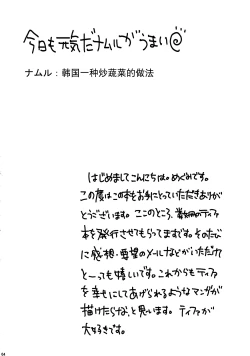 今日も元気だナムルがうまい@
ナムル：韩国一种炒蔬菜的做法
はじめましてこんにちは。めぐみです。
この度はこの本をお手にとっていただきありが
とうございます。ここのところ、
本を発行させてもらってますです。そのたび
に感想・要望のメールなどがいただけ
と～っても嬉しいです。これからもティファ
を幸せにしてあげられるようなマンガが
描けたらな、と思います。ティファが
大好きです。
04